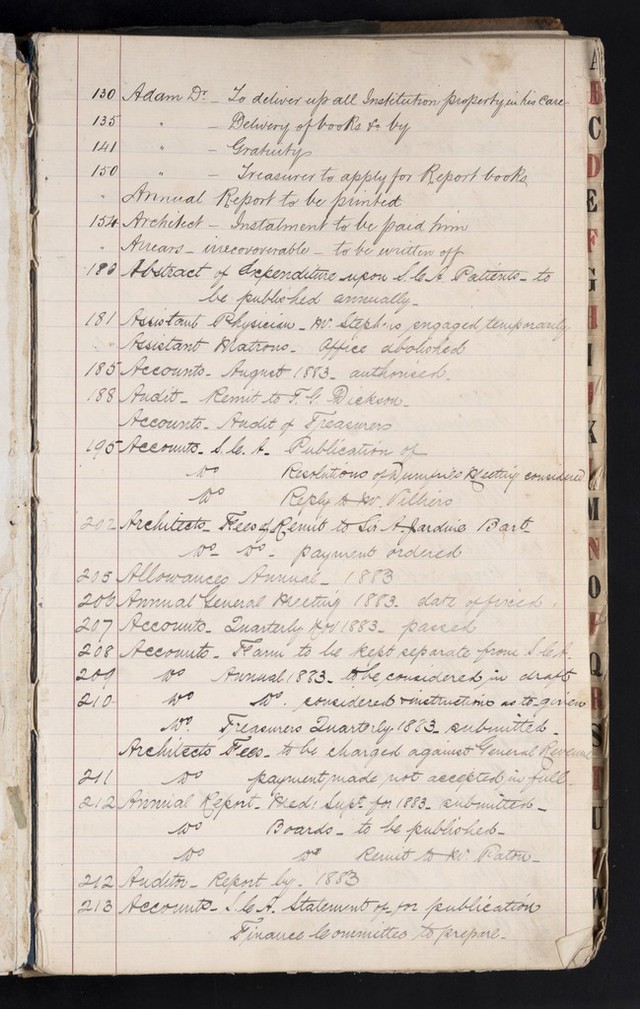 130 Adam Dr. - To deliver up all Institution property in his care
135 " - Delivery of books &c by
141 " - Gratuity
150 " - Treasurer to apply for Report books
" Annual Report to be printed
154 Architect - Instalment to be paid him
" Arrears - irrecoverable - to be written off
180 Abstract of Expenditure upon S.C.A. Patients - to
be published annually -
181 Assistant Physician - Mr. Stephens engaged temporarily
Assistant Matrons - Office abolished
185 Accounts - August 1883 - authorised -
188 Audit - Remit to T. G. Dickson -
Accounts - Audit of Treasurers
195 Accounts - S.C.A. Publication of
Do Resolutions of Dumfries Meeting considered
Do Reply to Mr. Villiers
202 Architects - Fees of Remit to Sir A Jardine Bart -
Do - Do - payment ordered
205 Allowances Annual - 1883
206 Annual General Meeting 1883 - date of fixed.
207 Accounts - Quarterly Nov 1883 - passed
208 Accounts - Farm to be kept separate from S.C.A.
209 Do Annual 1883 - to be considered in draft
210 Do Do. considered & instructions as to given
Do. Treasurers Quarterly 1883 - submitted -
Architects Fees - to be charged against General Revenue
211 Do payment, made not accepted in full -
212 Annual Report - Med: Supt. for 1883 - submitted -
Do Boards - to be published -
Do Do Remit to Mr. Paton -
212 Auditor - Report by - 1883
213 Accounts - S.C.A. Statement of - for publication
Finance Committee to prepare -
A
B
C
D
E
F
G
H
I
K
M
N
O
P
Q
R
S
T
U
W